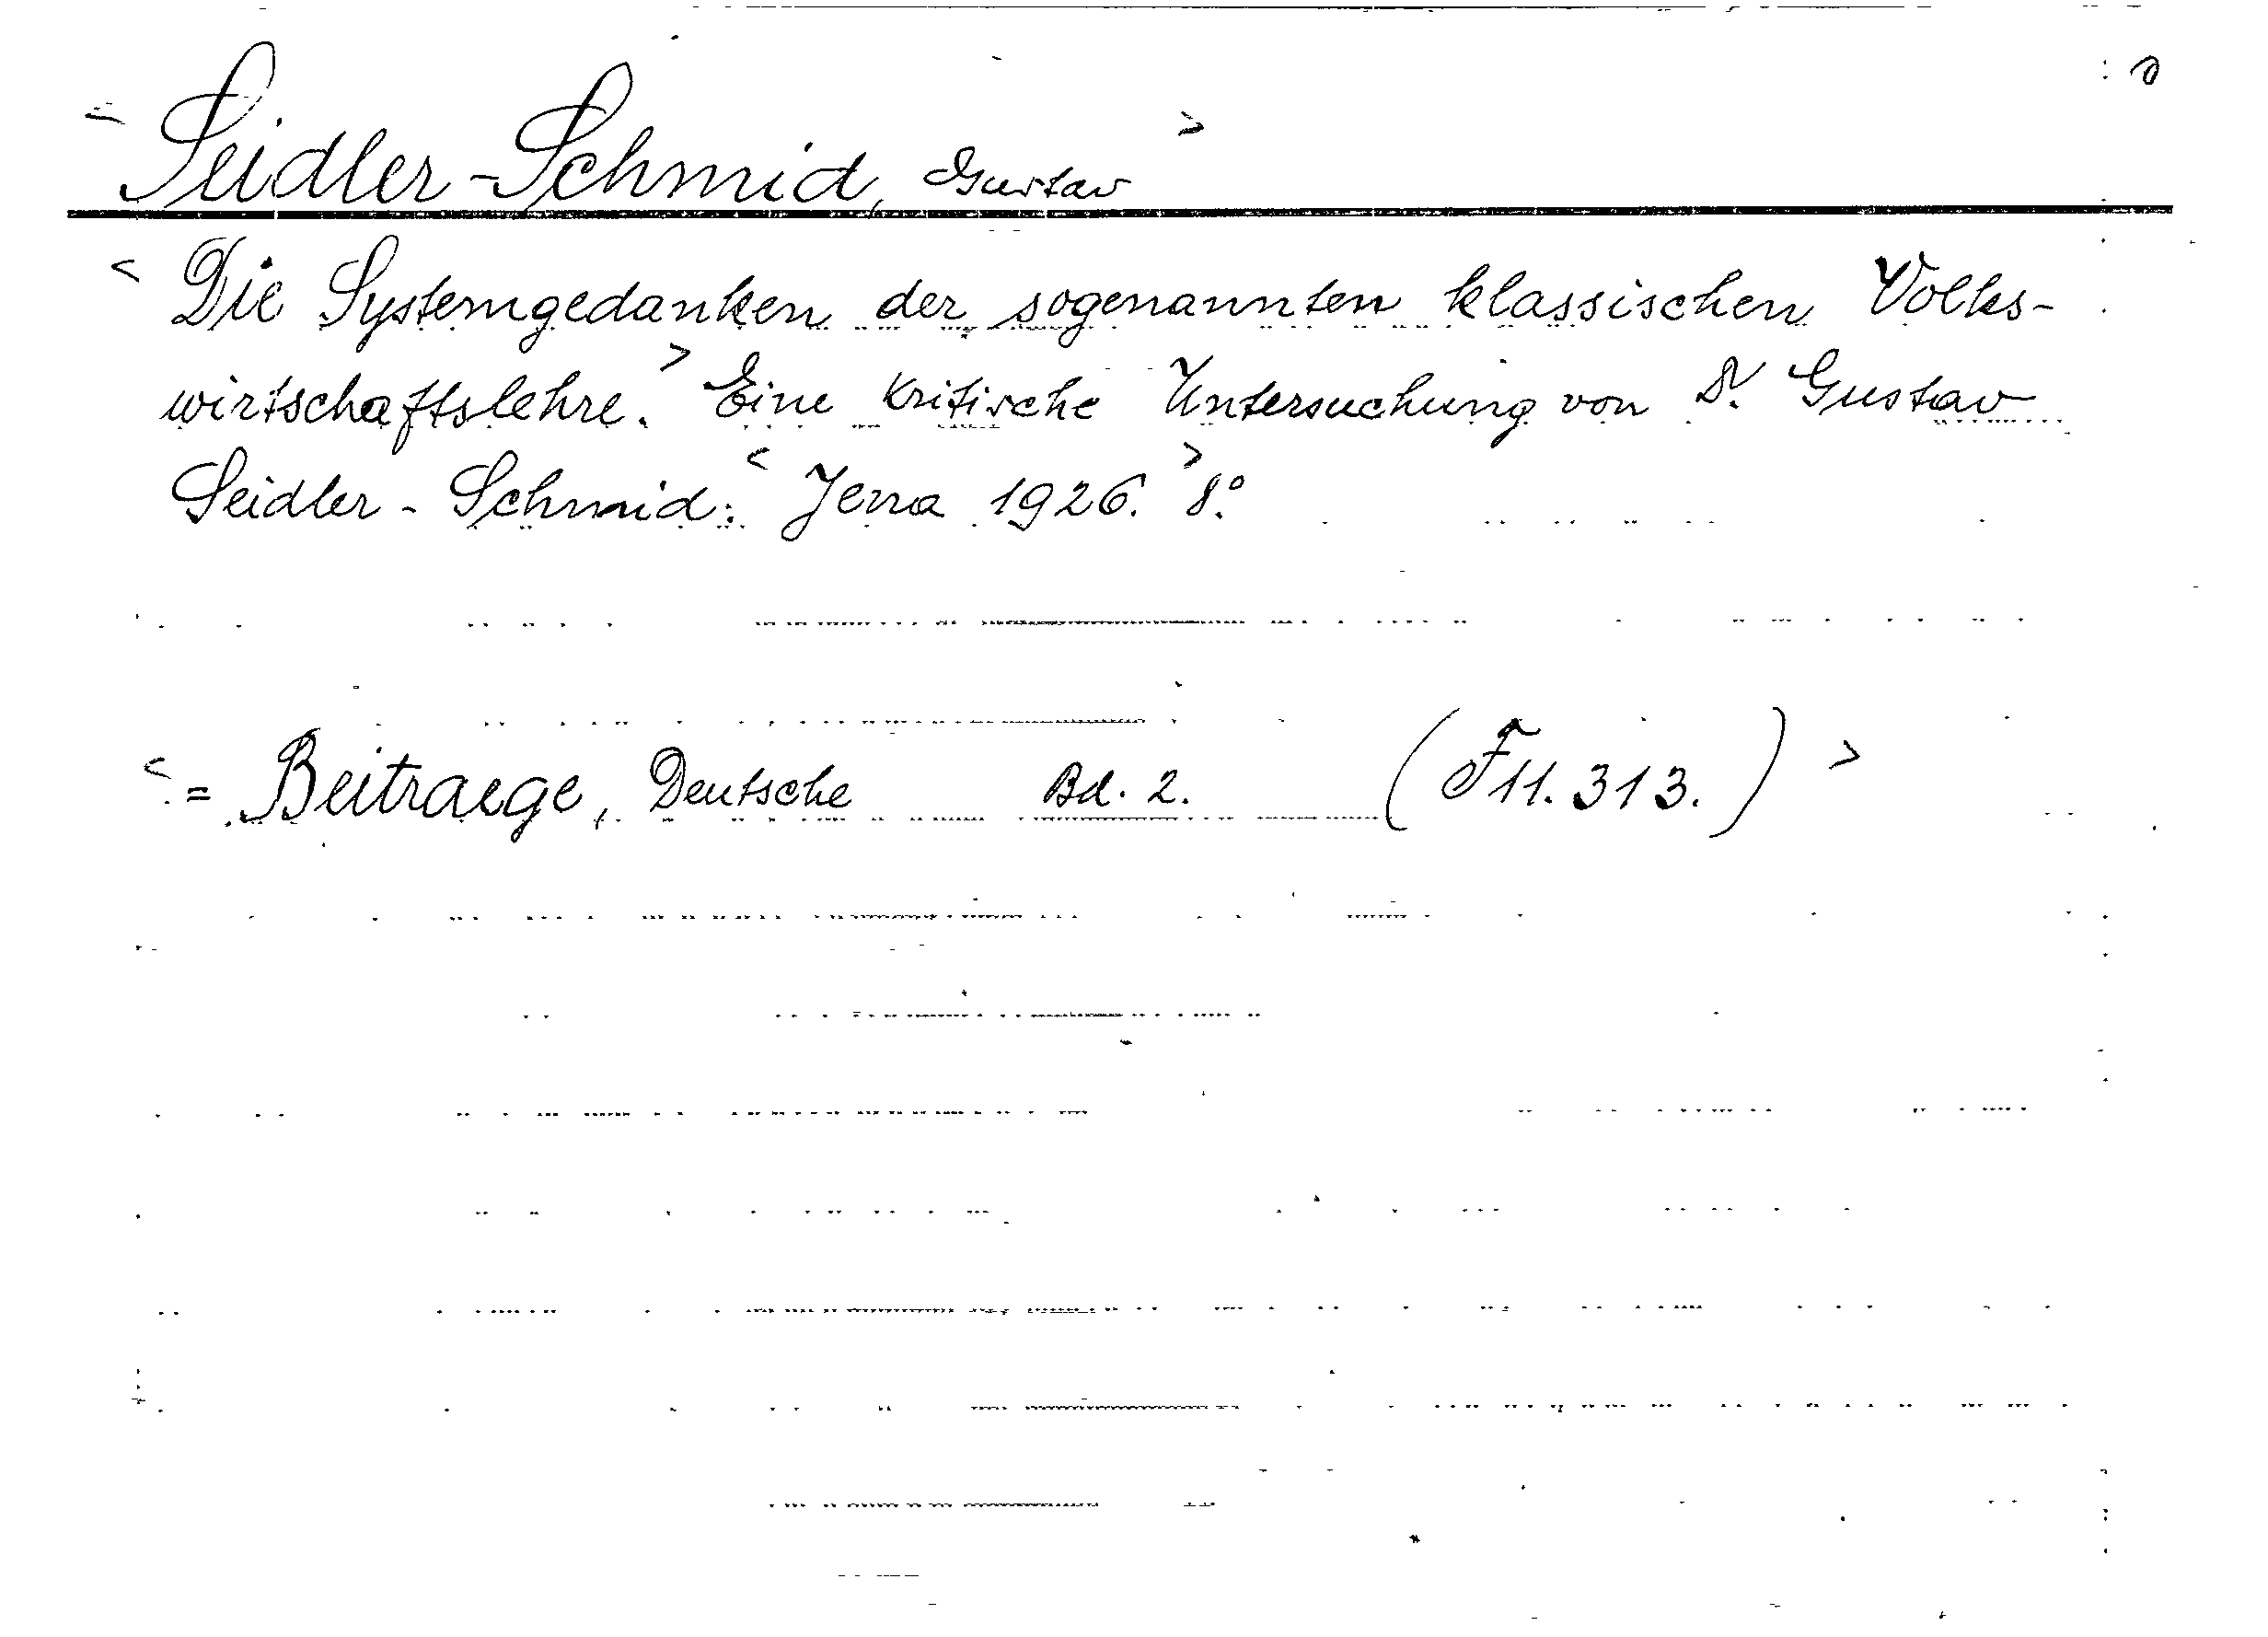 < Seidler-Schmid, Gustav >
< Die Systemgedanken der sogenannten klassischen Volks-
wirtschaftslehre. > Eine kritische Untersuchung von Dr. Gustav
Seidler-Schmid. < Jena 1926. > 8°.
< = Beitraege, Deutsche Bd. 2. (F11. 313.) >